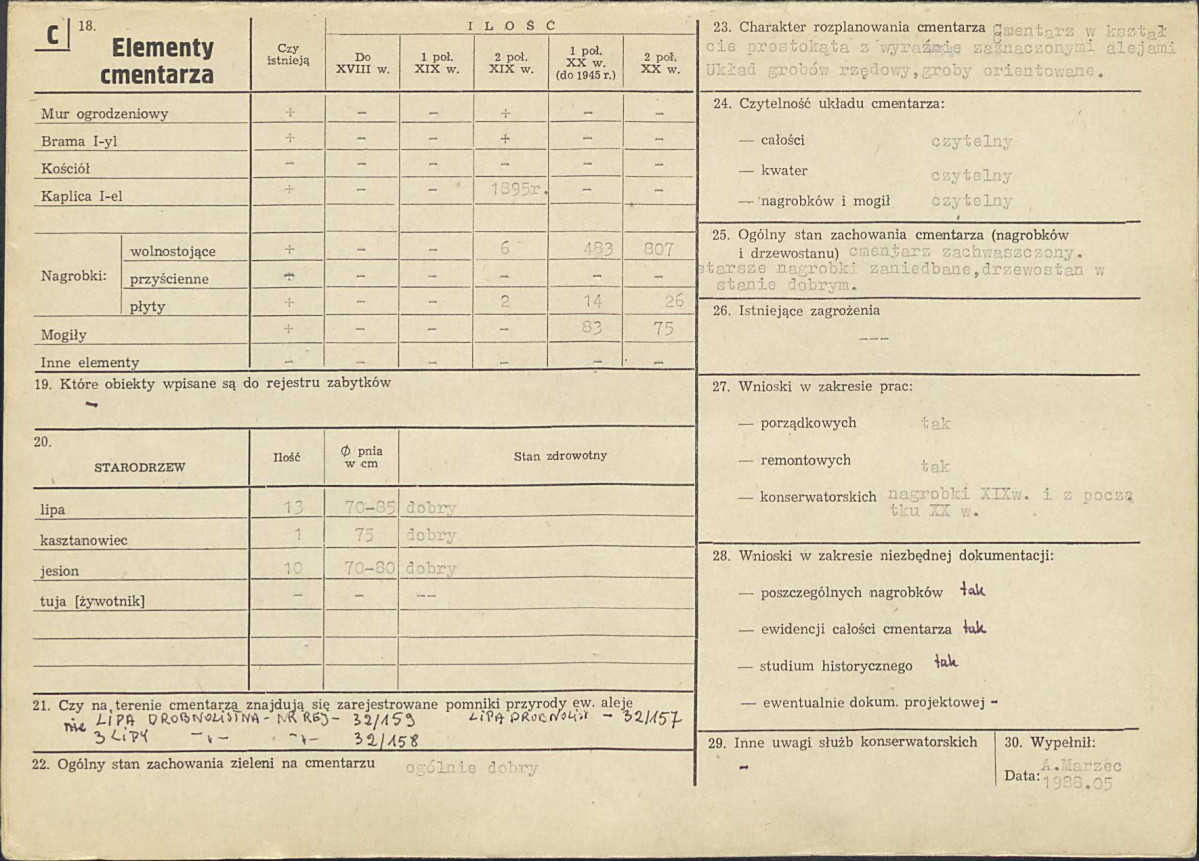 C 18.
Elementy
cmentarza
Czy
istnieją
I L O Ś Ć
Do
XVIII w.
1 poł.
XIX w.
2 poł.
XIX w.
1 poł.
XX w.
(do 1945 r.)
2 poł.
XX w.
Mur ogrodzeniowy + – – + – –
Brama I-yl + – – + – –
Kościół – – – – – –
Kaplica I-el + – – 1895r. – –
Nagrobki:
wolnostojące + – – 6 483 807
przyścienne – – – – –
płyty + – – 2 14 26
Mogiły + – – – 83 75
Inne elementy – – – – – –
19. Które obiekty wpisane są do rejestru zabytków
–
20.
STARODRZEW
Ilość
Ø pnia
w cm
Stan zdrowotny
lipa 13 70-85 dobry
kasztanowiec 1 75 dobry
jesion 10 70-80 dobry
tuja [żywotnik] – – --
21. Czy na terenie cmentarza znajdują się zarejestrowane pomniki przyrody ew. aleje
nie LIPA DROBNOLISTNA - NR REJ - 32/159 LIPA DROBNOLIST - 32/157
3 LIPY -"- -"- 32/158
22. Ogólny stan zachowania zieleni na cmentarzu ogólnie dobry
23. Charakter rozplanowania cmentarza Cmentarz w kształ
cie prostokąta z wyraźnie zaznaczonymi alejami
Układ grobów rzędowy,groby orientowane.
24. Czytelność układu cmentarza:
— całości czytelny
— kwater czytelny
— nagrobków i mogił czytelny
25. Ogólny stan zachowania cmentarza (nagrobków
i drzewostanu) cmentarz zachwaszczony.
starsze nagrobki zaniedbane,drzewostan w
stanie dobrym.
26. Istniejące zagrożenia
---
27. Wnioski w zakresie prac:
— porządkowych tak
— remontowych tak
— konserwatorskich nagrobki XIXw. i z począ
tku XX w.
28. Wnioski w zakresie niezbędnej dokumentacji:
— poszczególnych nagrobków tak
— ewidencji całości cmentarza tak
— studium historycznego tak
— ewentualnie dokum. projektowej –
29. Inne uwagi służb konserwatorskich
–
30. Wypełnił:
A.Marzec
Data: 1988.05